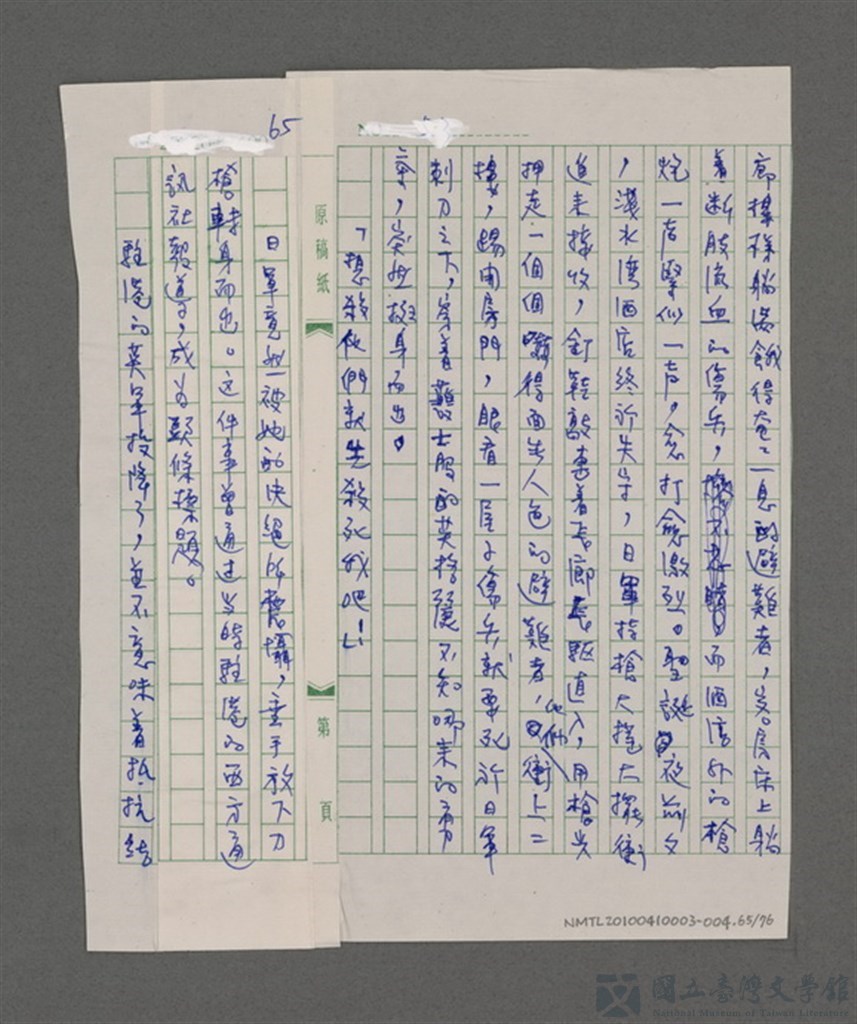 65
廊樓梯躺滿餓得奄々一息的避難者，岩房床上躺
着断肢流血的傷兵，而酒店外的槍
炮一店緊似一声，愈打愈激烈。聖誕夜前夕
，淺水湾酒店終於失守，日軍持槍大搖大擺衝
進来接收，釘鞋敲重着長廊長驅直入，用槍尖
押走一個個嚇得面無人色的避難者，他们衝上二
樓，踢開房門，眼看一屋子傷兵就要死於日軍
刺刀之下，穿着護士服的英格麗不知哪来的勇
氣，突然挺身而出。
「想殺他們就先殺死我吧！」
原稿紙
第 頁
日軍竟然被她的決絕所震懾，垂手放下刀
槍轉身而出。这件事曾通过当時駐港的西方通
訊社報導，成为頭條標題。
駐港的英軍投降了，並不意味着抵抗結
NMTL20100410003-004.65/76
國立臺灣文學館
National Museum of Taiwan Literature